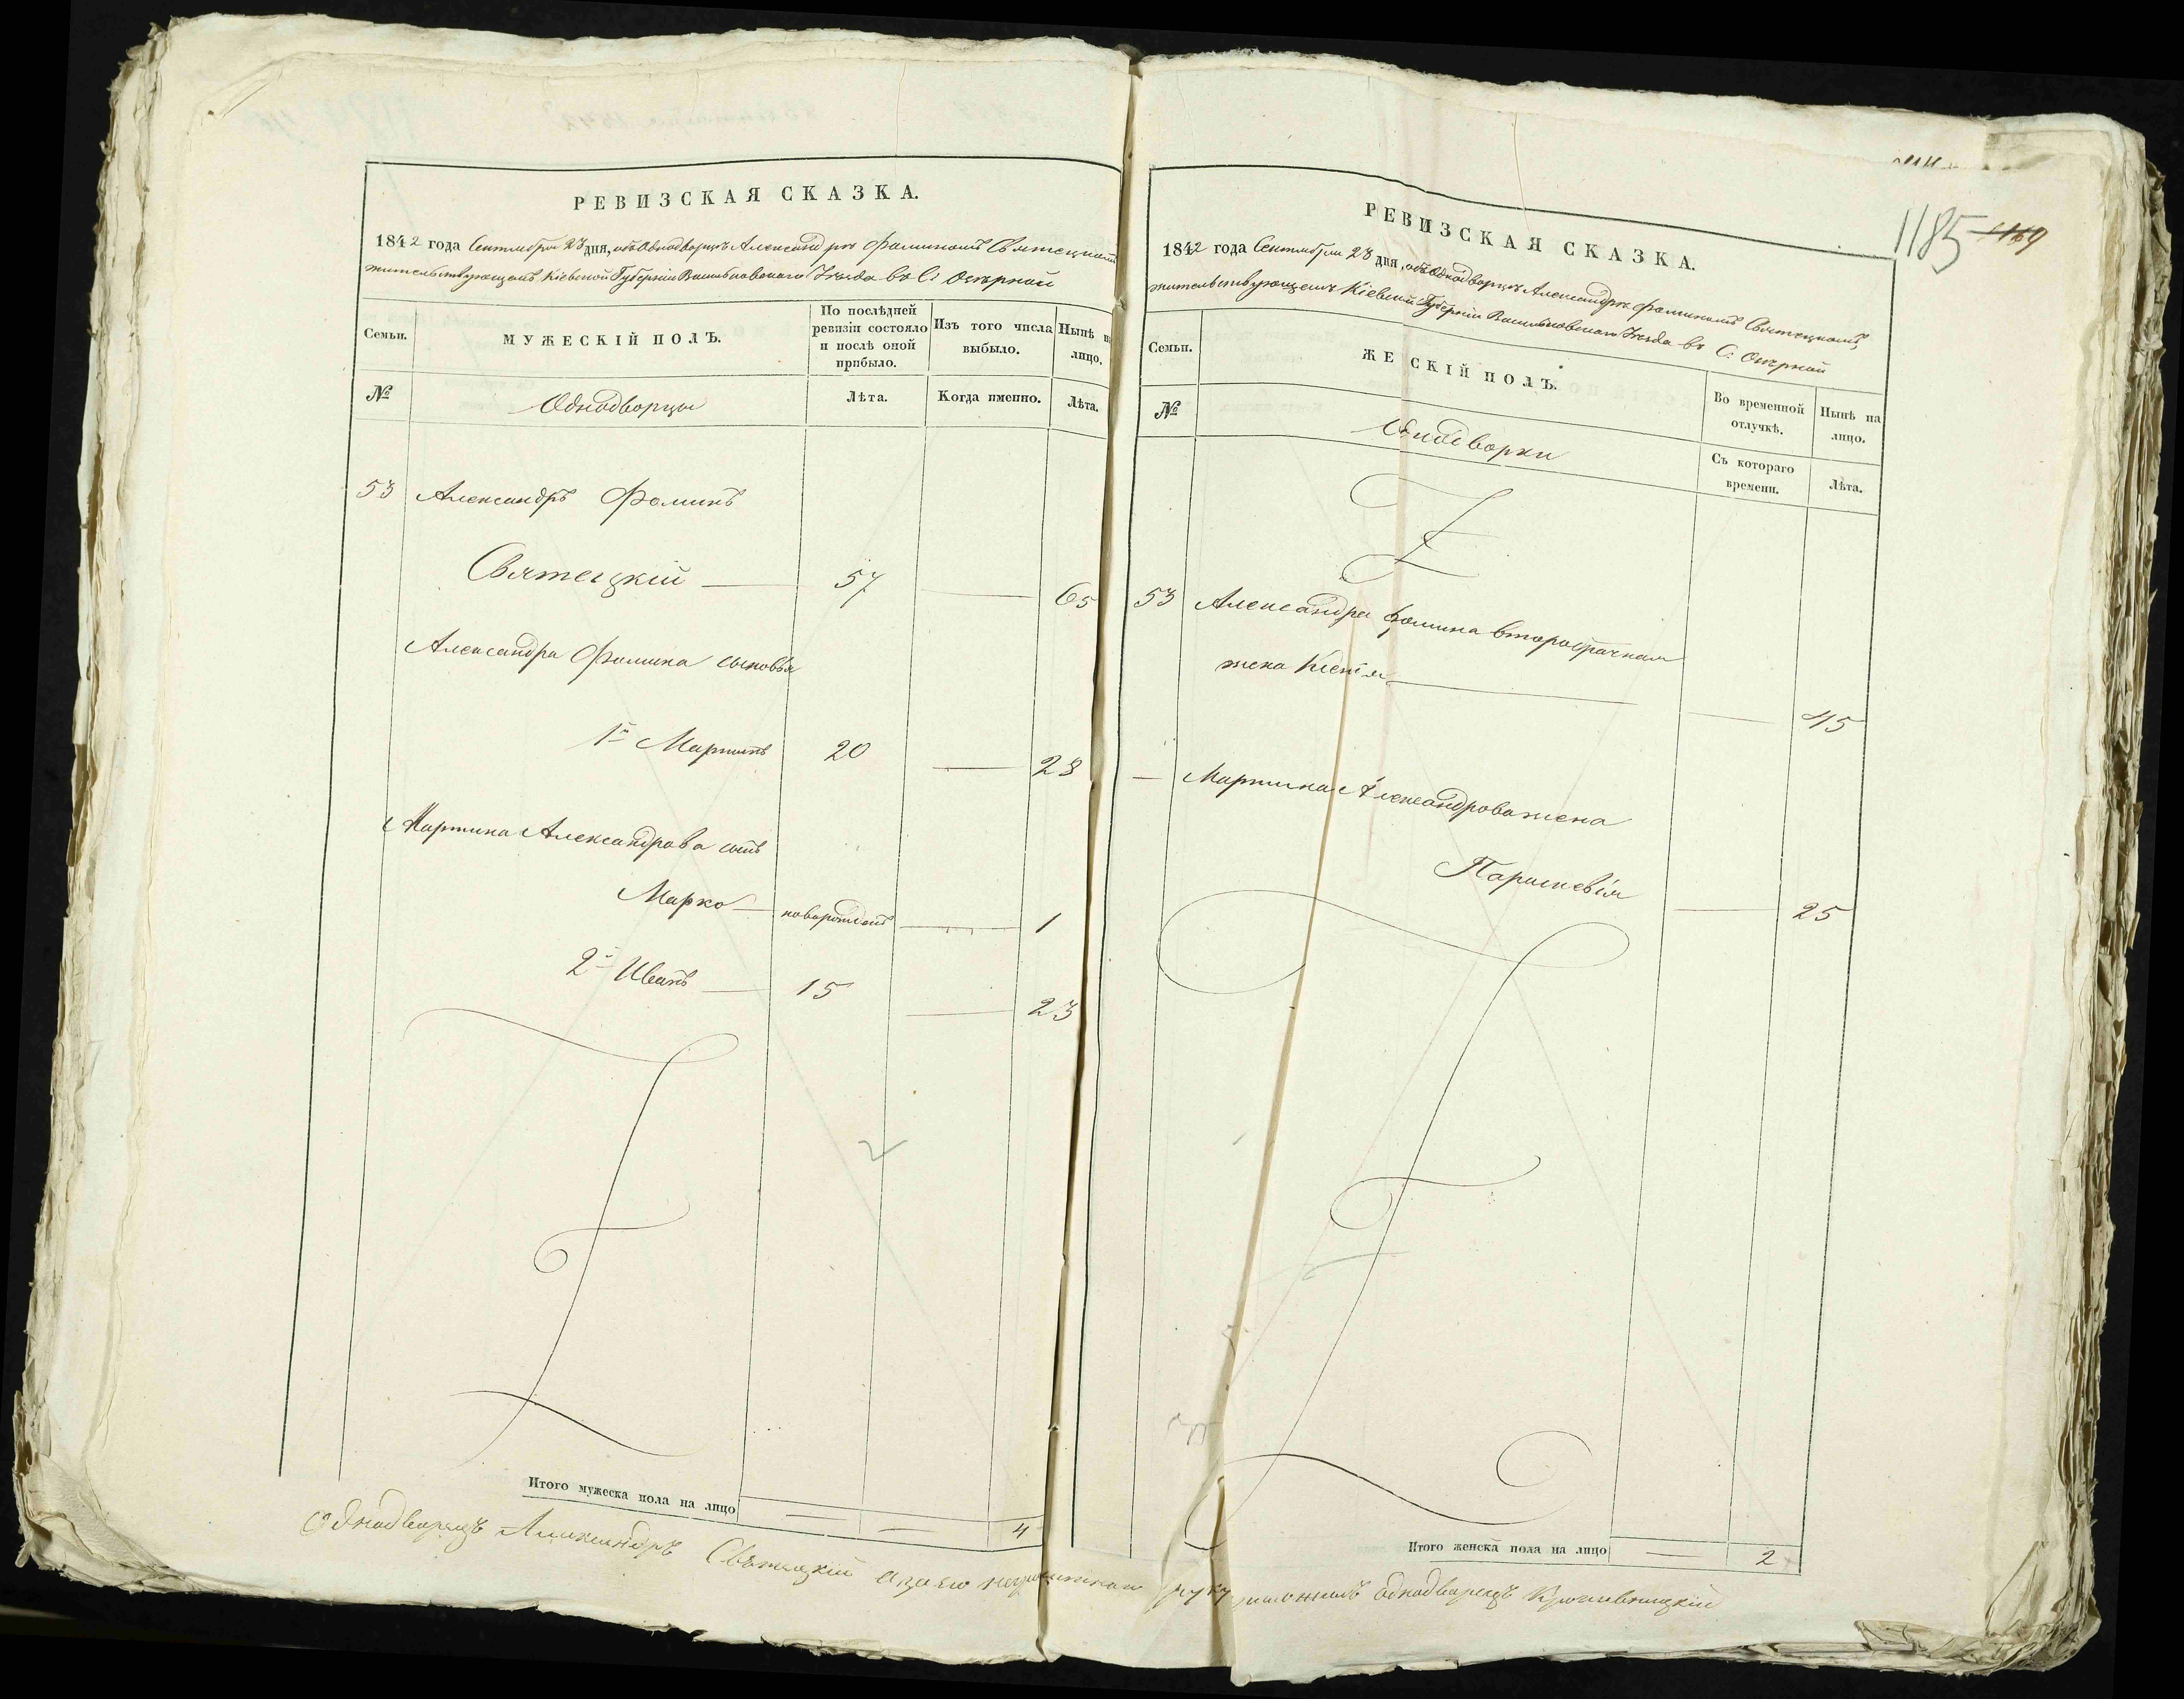 РЕВИЗСКАЯ СКАЗКА.
1842 года Сентября 23 дня, объ Однодворцѣ Александрѣ Фоминомъ Святецкомъ
жительствующемъ Кіевской Губерніи Васильковскаго Уѣзда въ С: Озѣрной
Семьи.
МУЖЕСКІЙ ПОЛЪ.
По послѣдней
ревизіи состояло
и послѣ оной
прибыло.
Изъ того числа
выбыло.
Нынѣ н
лицо.
№
Однодворцы
Лѣта.
Когда именно.
Лѣта.
53 Александръ Фоминъ
Святецкій 57 65
Александра Фомина сыновья
1й Мартинъ 20 28
Мартина Александрова сынъ
Марко новорожденъ 1
2й Иванъ 15 23
Итого мужеска пола на лицо 4
1185 1169
РЕВИЗСКАЯ СКАЗКА.
1842 года Сентября 23 дня, объ Однодворцѣ Александрѣ Фоминомъ Святецкомъ
жительствующемъ Кіевской Губерніи Васильковскаго Уѣзда въ С: Озѣрной
Семьи.
ЖЕ СКІЙ ПОЛЪ.
Во временной
отлучкѣ.
Нынѣ на
лицо.
№
Однодворки
Съ котораго
времени.
Лѣта.
53 Александра Фомина второбрачная
жена Ксенія 45
Мартина Александрова жена
Параскевія 25
Итого женска пола на лицо 2
Однодварецъ Александръ Святецкій а за его неграмотнаго руку приложилъ однодварецъ